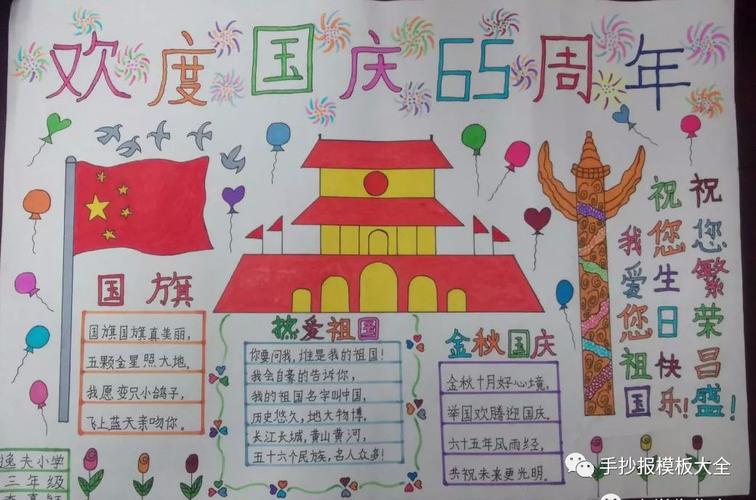 欢度国庆65周年
国旗
国旗国旗真美丽，
五颗金星照大地。
我愿变只小鸽子，
飞上蓝天亲吻你。
热爱祖国
你要问我，谁是我的祖国！
我会自豪的告诉你，
我的祖国名字叫中国，
历史悠久，地大物博，
长江长城，黄山黄河，
五十六个民族，名人众多！
金秋国庆
金秋十月好心境，
举国欢腾迎国庆。
六十五年风雨经，
共祝未来更光明。
祝您繁荣昌盛！
祝您生日快乐！
我爱您祖国
逸夫小学
三年级
手抄报模板大全